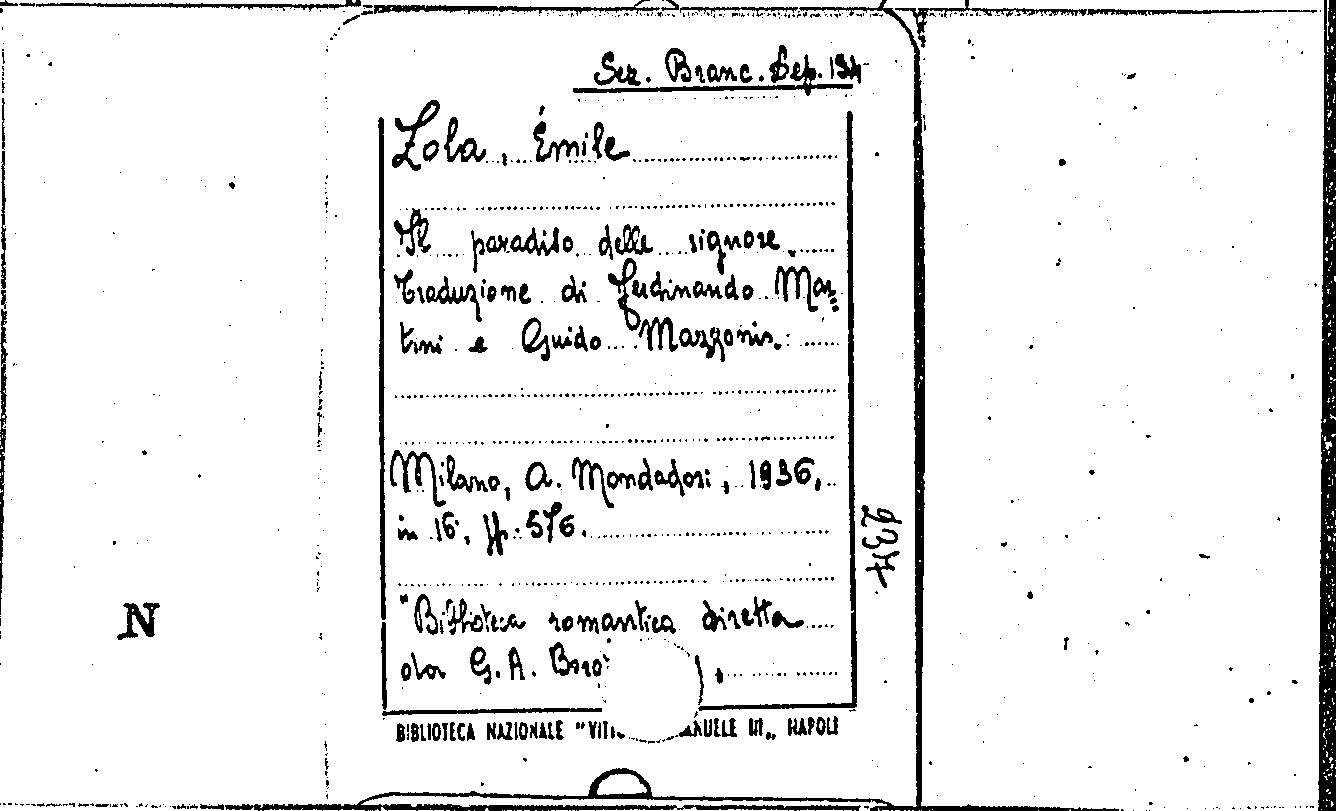 Sez. Branc. Dep. 194
Zola, Émile
Il paradiso delle signore.
Traduzione di Ferdinando Mar=
tini e Guido Mazzonis.
Milano, A. Mondadori, 1936,
in 16°, pp. 576.
"Biblioteca romantica diretta
da G. A.
BIBLIOTECA NAZIONALE "VITT ANUELE III„ NAPOLI
N